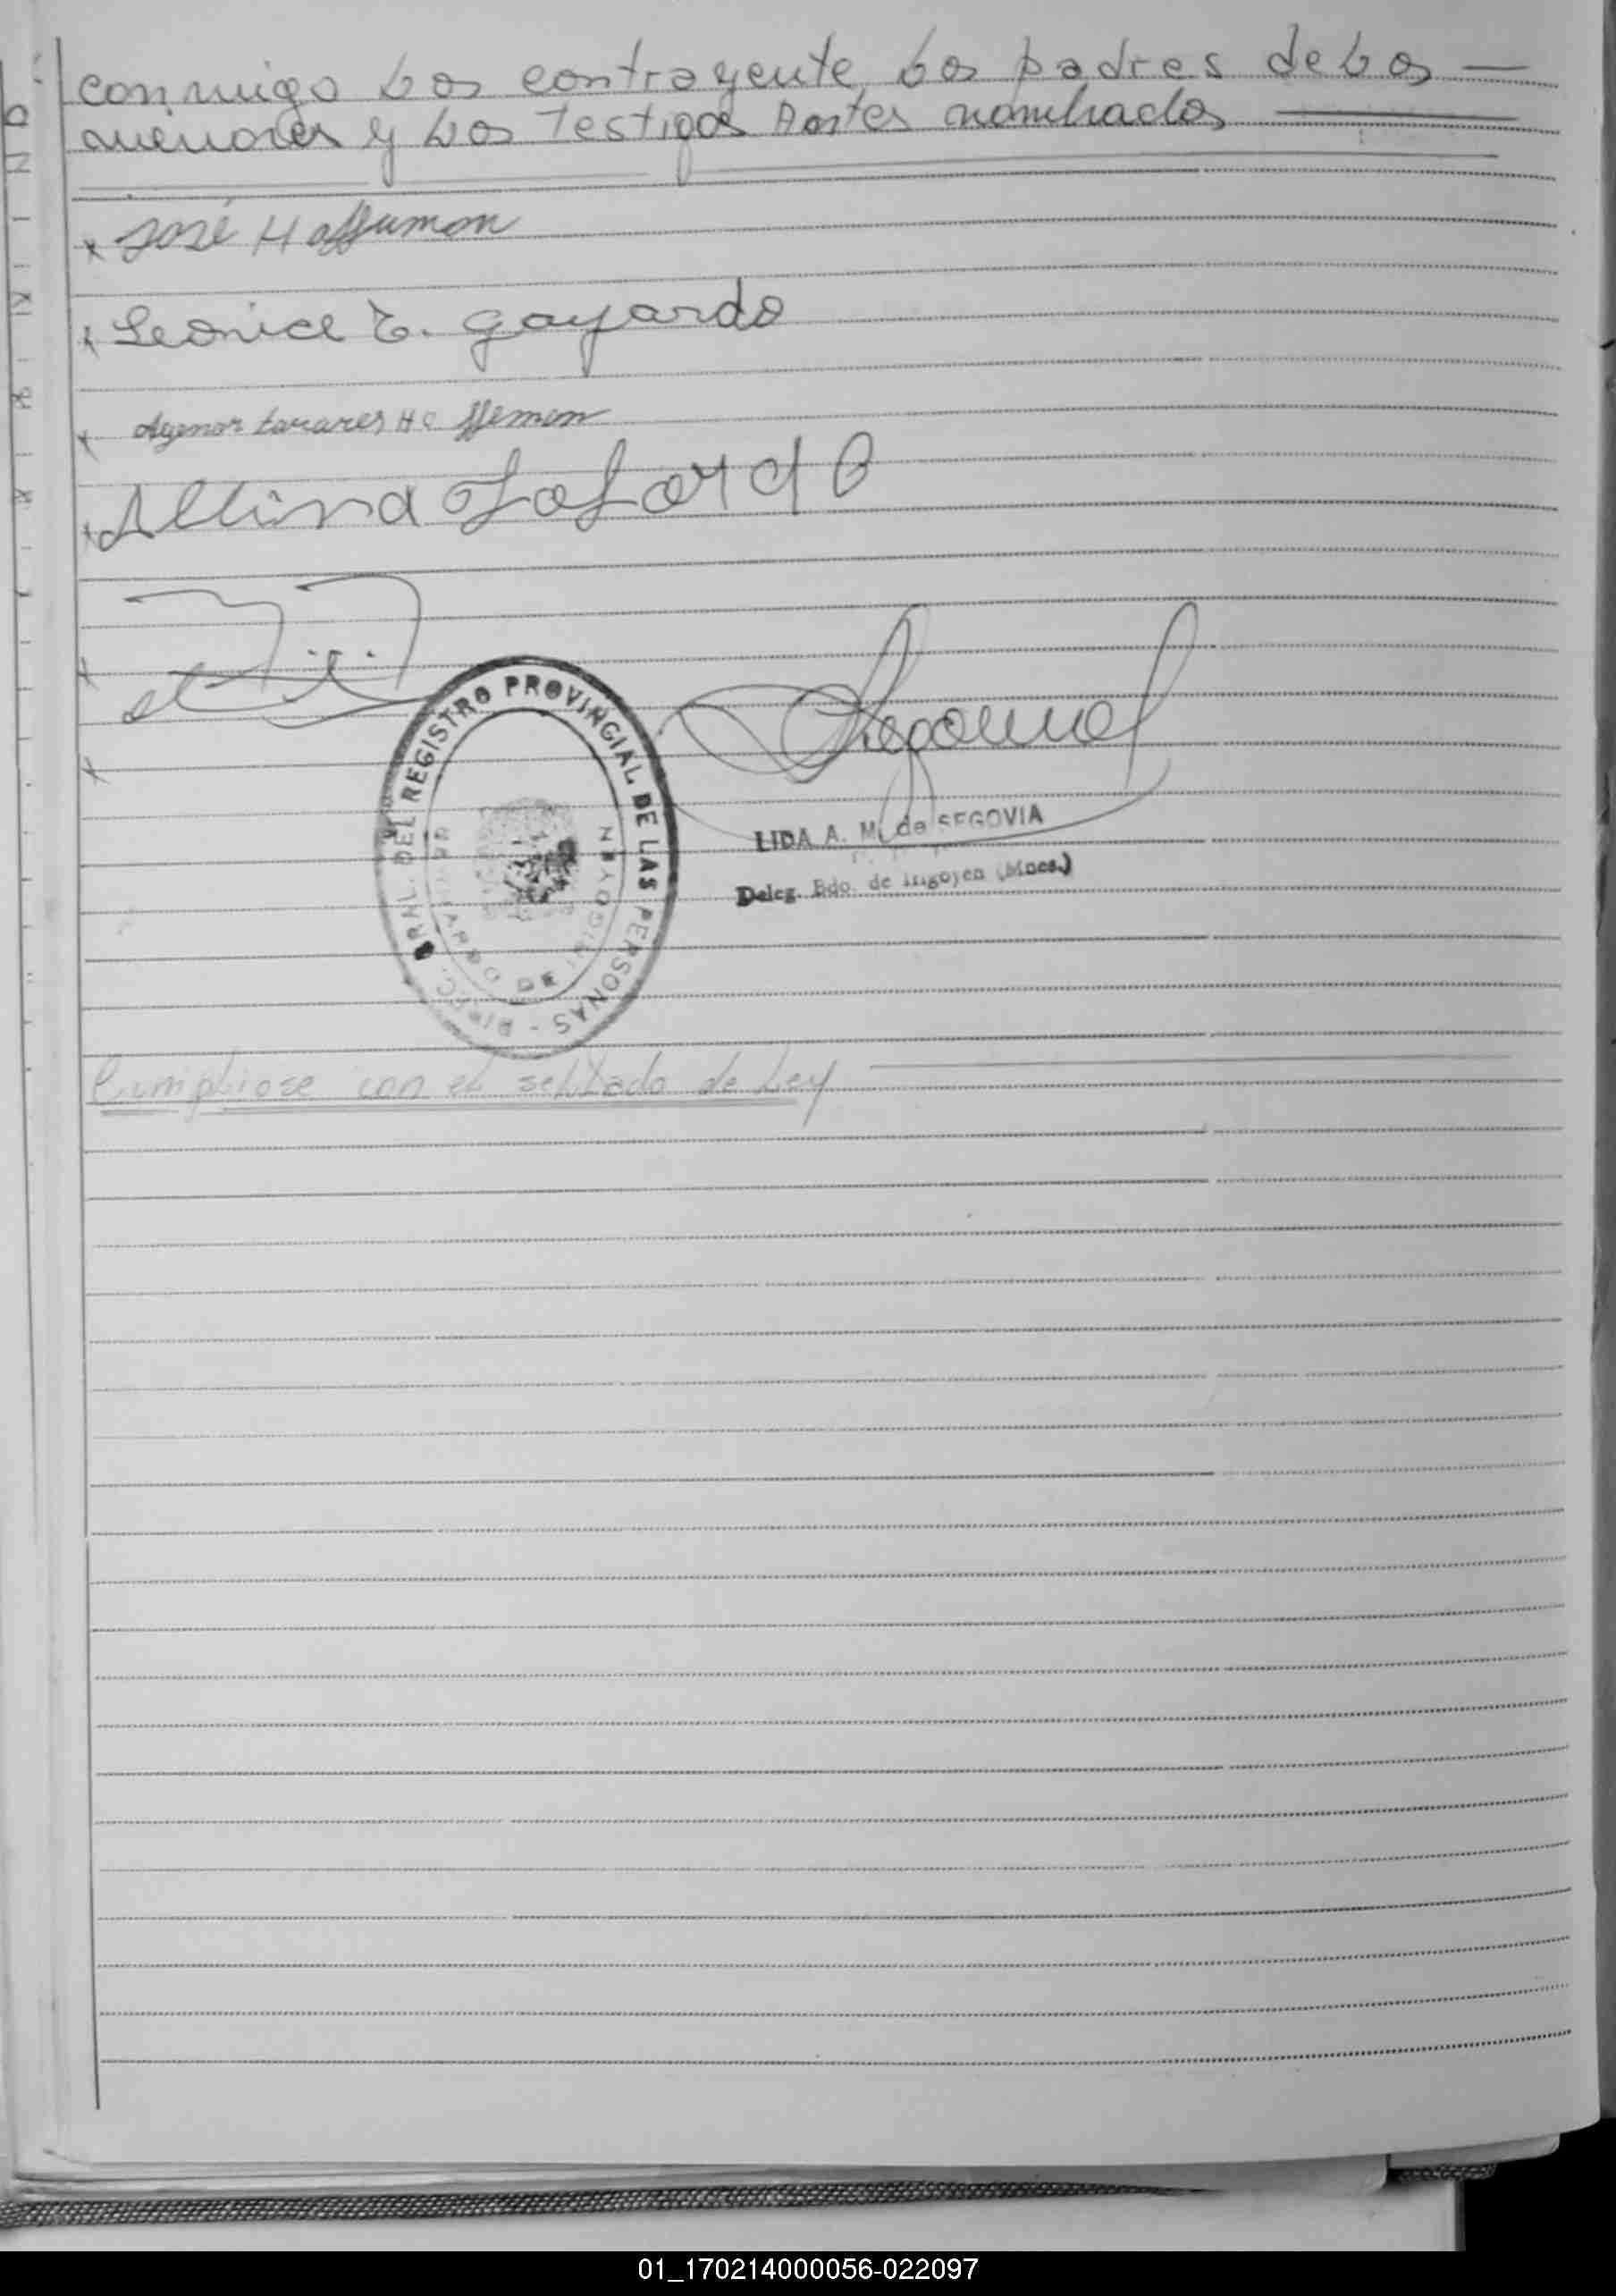 conmigo los contrayente, los padres de los —
menores y los Testigos Antes nombrados —
x José Haffumon
x Leonice T. Gayardo
x Agenor tavares Ho ffemen
x Albina
x
x
DEL REGISTRO PROVINCIAL DE LAS PERSONAS -
DE IRIGOYEN
LIDA A. M. de SEGOVIA
Deleg. Bdo. de Irigoyen (Mnes.)
Cumpliose con el sellado de Ley
01_170214000056-022097